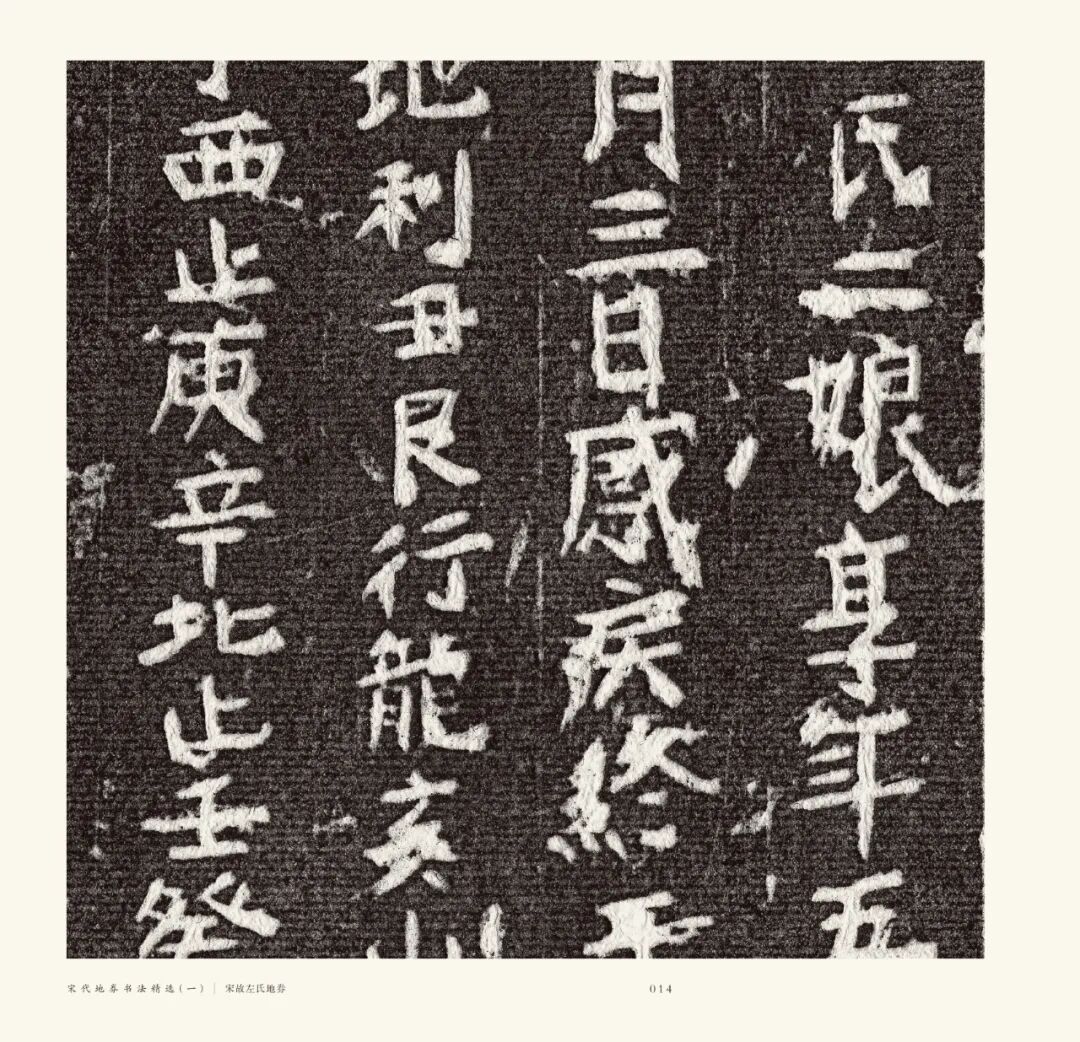 氏二娘享年五
月三日感疾終于
地利丑艮行龍亥
西止庚辛北止壬癸
宋代地券书法精选(一) | 宋故左氏地券
014